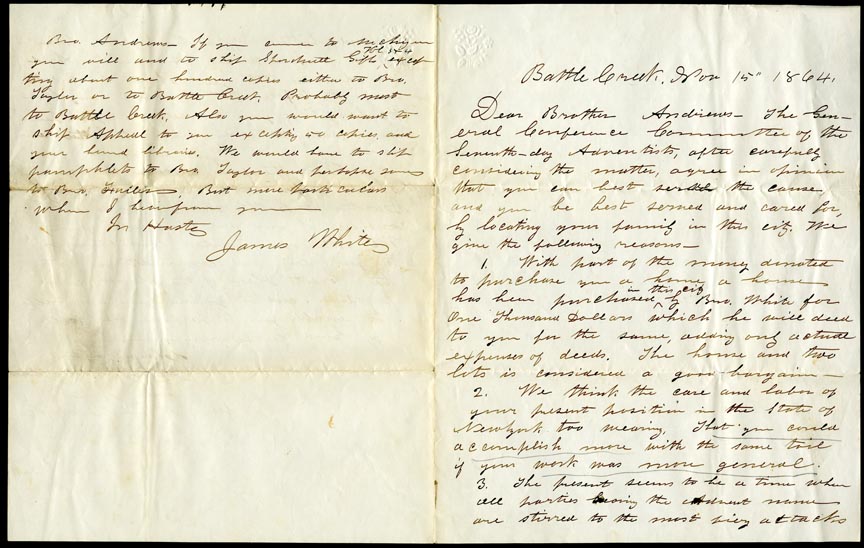 Bro. Andrews— If you come to Michigan
you will and to ship Spiritual Gifts, Vol. 3 & 4 except
ting about one hundred copies either to Bro.
Taylor or to Battle Creek. Probably most
to Battle Creek. Also you would want to
ship Appeal to you excepting copies, and
your bound libraries. We would have to ship
pamphlets to Bro. Taylor and perhaps some
to Bro. But more particulars
when I hear from you
In Haste
James White
Battle Creek, Nov 15" 1864.
Dear Brother Andrews— The Gen-
eral Conference Committee of the
Seventh-day Adventists, after carefully
considering the matter, agree in opinion
that you can best serve the cause,
and you be best served and cared for,
by locating your family in this city. We
give the following reasons—
1. With part of the money donated
to purchase you a home, a house
has been purchased in this city by Bro. White for
One Thousand Dollars which he will deed
to you for the same, adding only actual
expenses of deeds. The house and two
lots is considered a good bargain—
2. We think the care and labor of
your present position in the State of
New York too wearing, That you could
accomplish more with the same toil
if your work was more general.
3. The present seems to be a time when
all parties bearing the Advent name
are stirred to the most fiery attacks